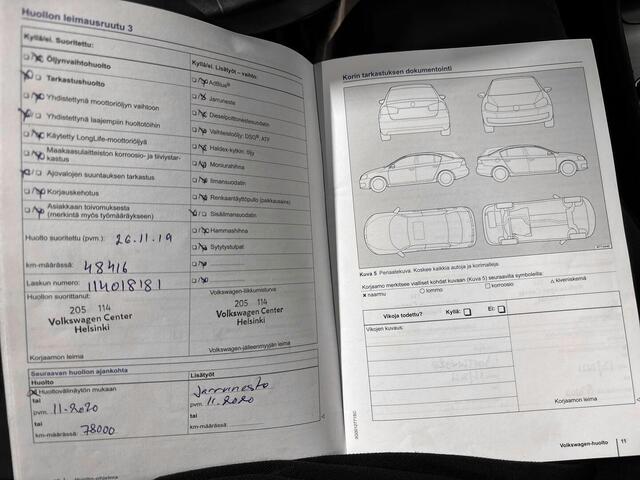 Huollon leimausruutu 3
Kyllä/ei. Suoritettu:
Öljynvaihtohuolto
Tarkastushuolto
Yhdistettynä moottoriöljyn vaihtoon
Yhdistettynä laajempiin huoltotoihin
Käytetty LongLife-moottoriöljyä
Maakaasulaitteiston korroosio- ja tiiviystar-
kastus
Ajovalojen suuntauksen tarkastus
Korjauskehotus
Asiakkaan toivomuksesta
(merkintä myös työmääräykseen)
Huolto suoritettu (pvm.) 26.11.19
km-määrässä: 48416
Laskun numero: 114018181
Huollon suorittanut:
205 114
Volkswagen Center
Helsinki
Korjaamon leima
Kyllä/ei. Lisätyöt – vaihto:
AdBlue®
Jarruneste
Dieselpolttonestesuodatin
Vaihteistoöljy: DSG®, ATF
Haldex-kytkin: öljy
Moniurahihna
Ilmansuodatin
Renkaantäyttöpullo (paikkausaine)
Sisäilmansuodatin
Hammashihna
Sytytystulpat
Volkswagen-liikkumisturva:
205 114
Volkswagen Center
Helsinki
Volkswagen-jälleenmyyjän leima
Seuraavan huollon ajankohta
Huolto
Huoltovälinäytön mukaan
tai
pvm. 11-2020
tai
km-määrässä: 78000
Lisätyöt
Jarruneste
pvm. 11.2020
tai
km-määrässä:
Korin tarkastuksen dokumentointi
Kuva 5 Periaatekuva. Koskee kaikkia autoja ja korimalleja.
Korjaamo merkitsee vialliset kohdat kuvaan (Kuva 5) seuraavilla symboleilla:
× naarmu ○ lommo □ korroosio △ kiveniskemä
Vikoja todettu? Kyllä: Ei:
Vikojen kuvaus:
Korjaamon leima
Volkswagen-huolto 11